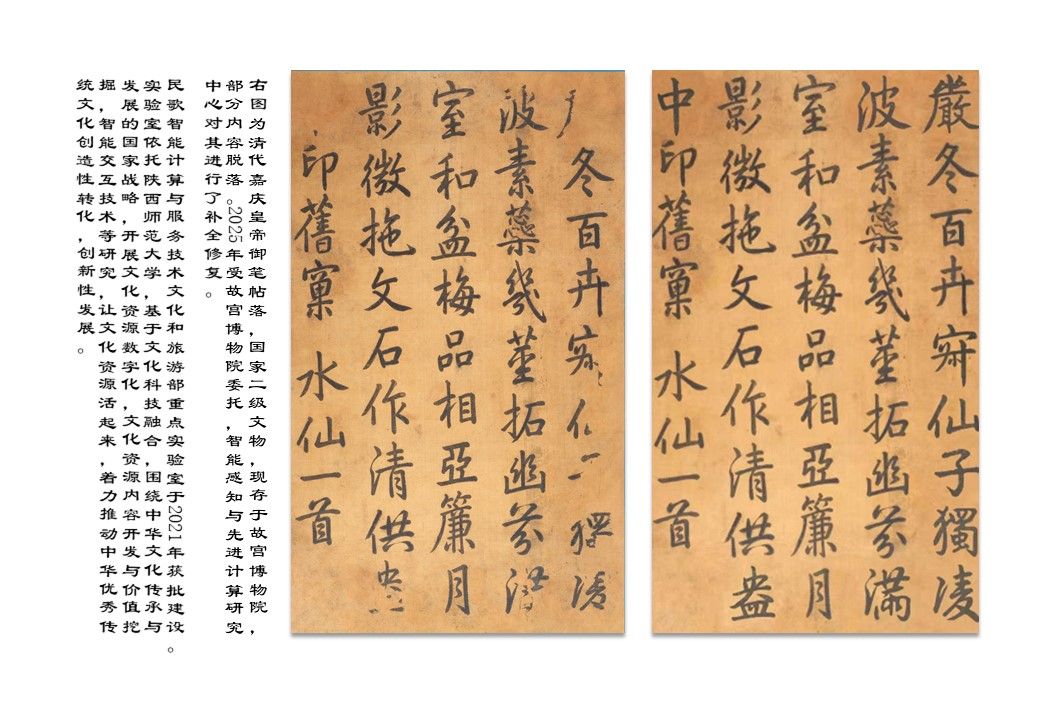 右图为清代嘉庆皇帝御笔帖落，国家二级文物，现存于故宫博物院，
部分内容脱落。2025年受故宫博物院委托，智能感知与先进计算研究
中心对其进行了补全修复。
民歌智能计算与服务技术文化和旅游部重点实验室于2021年获批建设。
实验室依托陕西师范大学，基于文化科技融合，围绕中华文化传承与
发展的国家战略，开展文化资源数字化，文化资源内容开发与价值挖
掘，智能交互技术等研究，让文化资源活起来，着力推动中华优秀传
统文化创造性转化，创新性发展。
冬百卉獨凌
波素蘂幾莖拓幽芬
室和盆梅品相亞簾月
影微拖文石作清供
印舊窠 水仙一首
嚴冬百卉仙子獨凌
波素蘂幾莖拓幽芬滿
室和盆梅品相亞簾月
影微拖文石作清供盎
中印舊窠 水仙一首